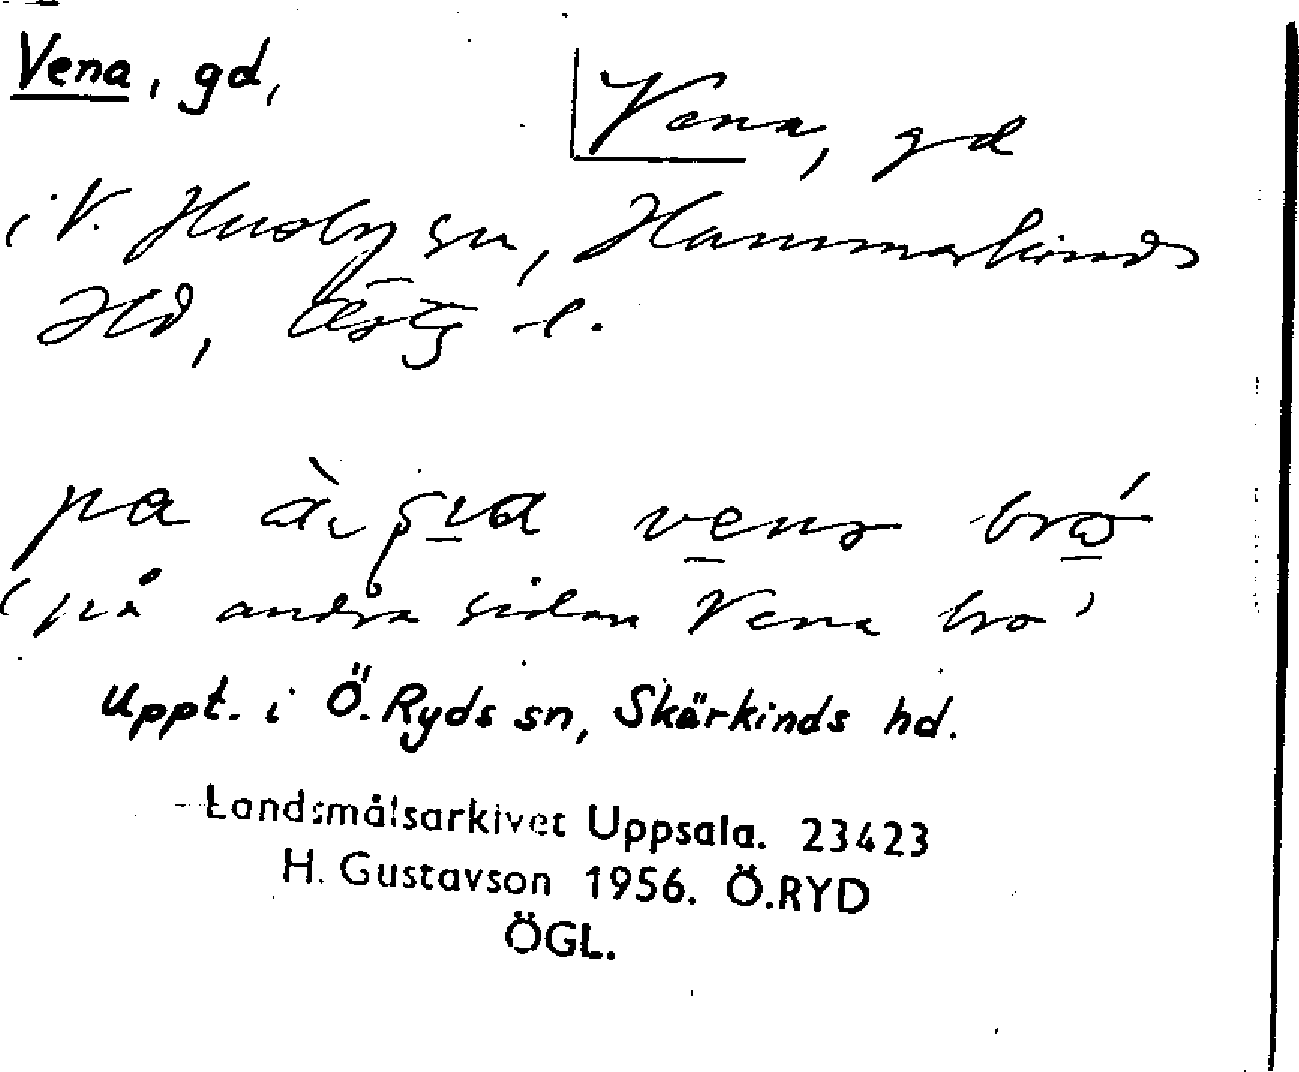 Vena, gd,
Vena, gd
i V. Husby sn, Hammarkinds
Hd, Östg l.
på andra sidan Vena bro'
Uppt. i Ö. Ryds sn, Skärkinds hd.
Landsmålsarkivet Uppsala. 23423
H. Gustavson 1956. Ö.RYD
ÖGL.